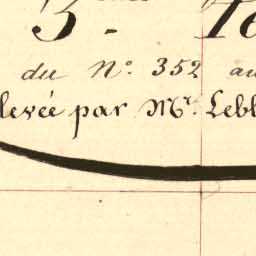 3.
du N° 352 au
levée par Mr. Lebl